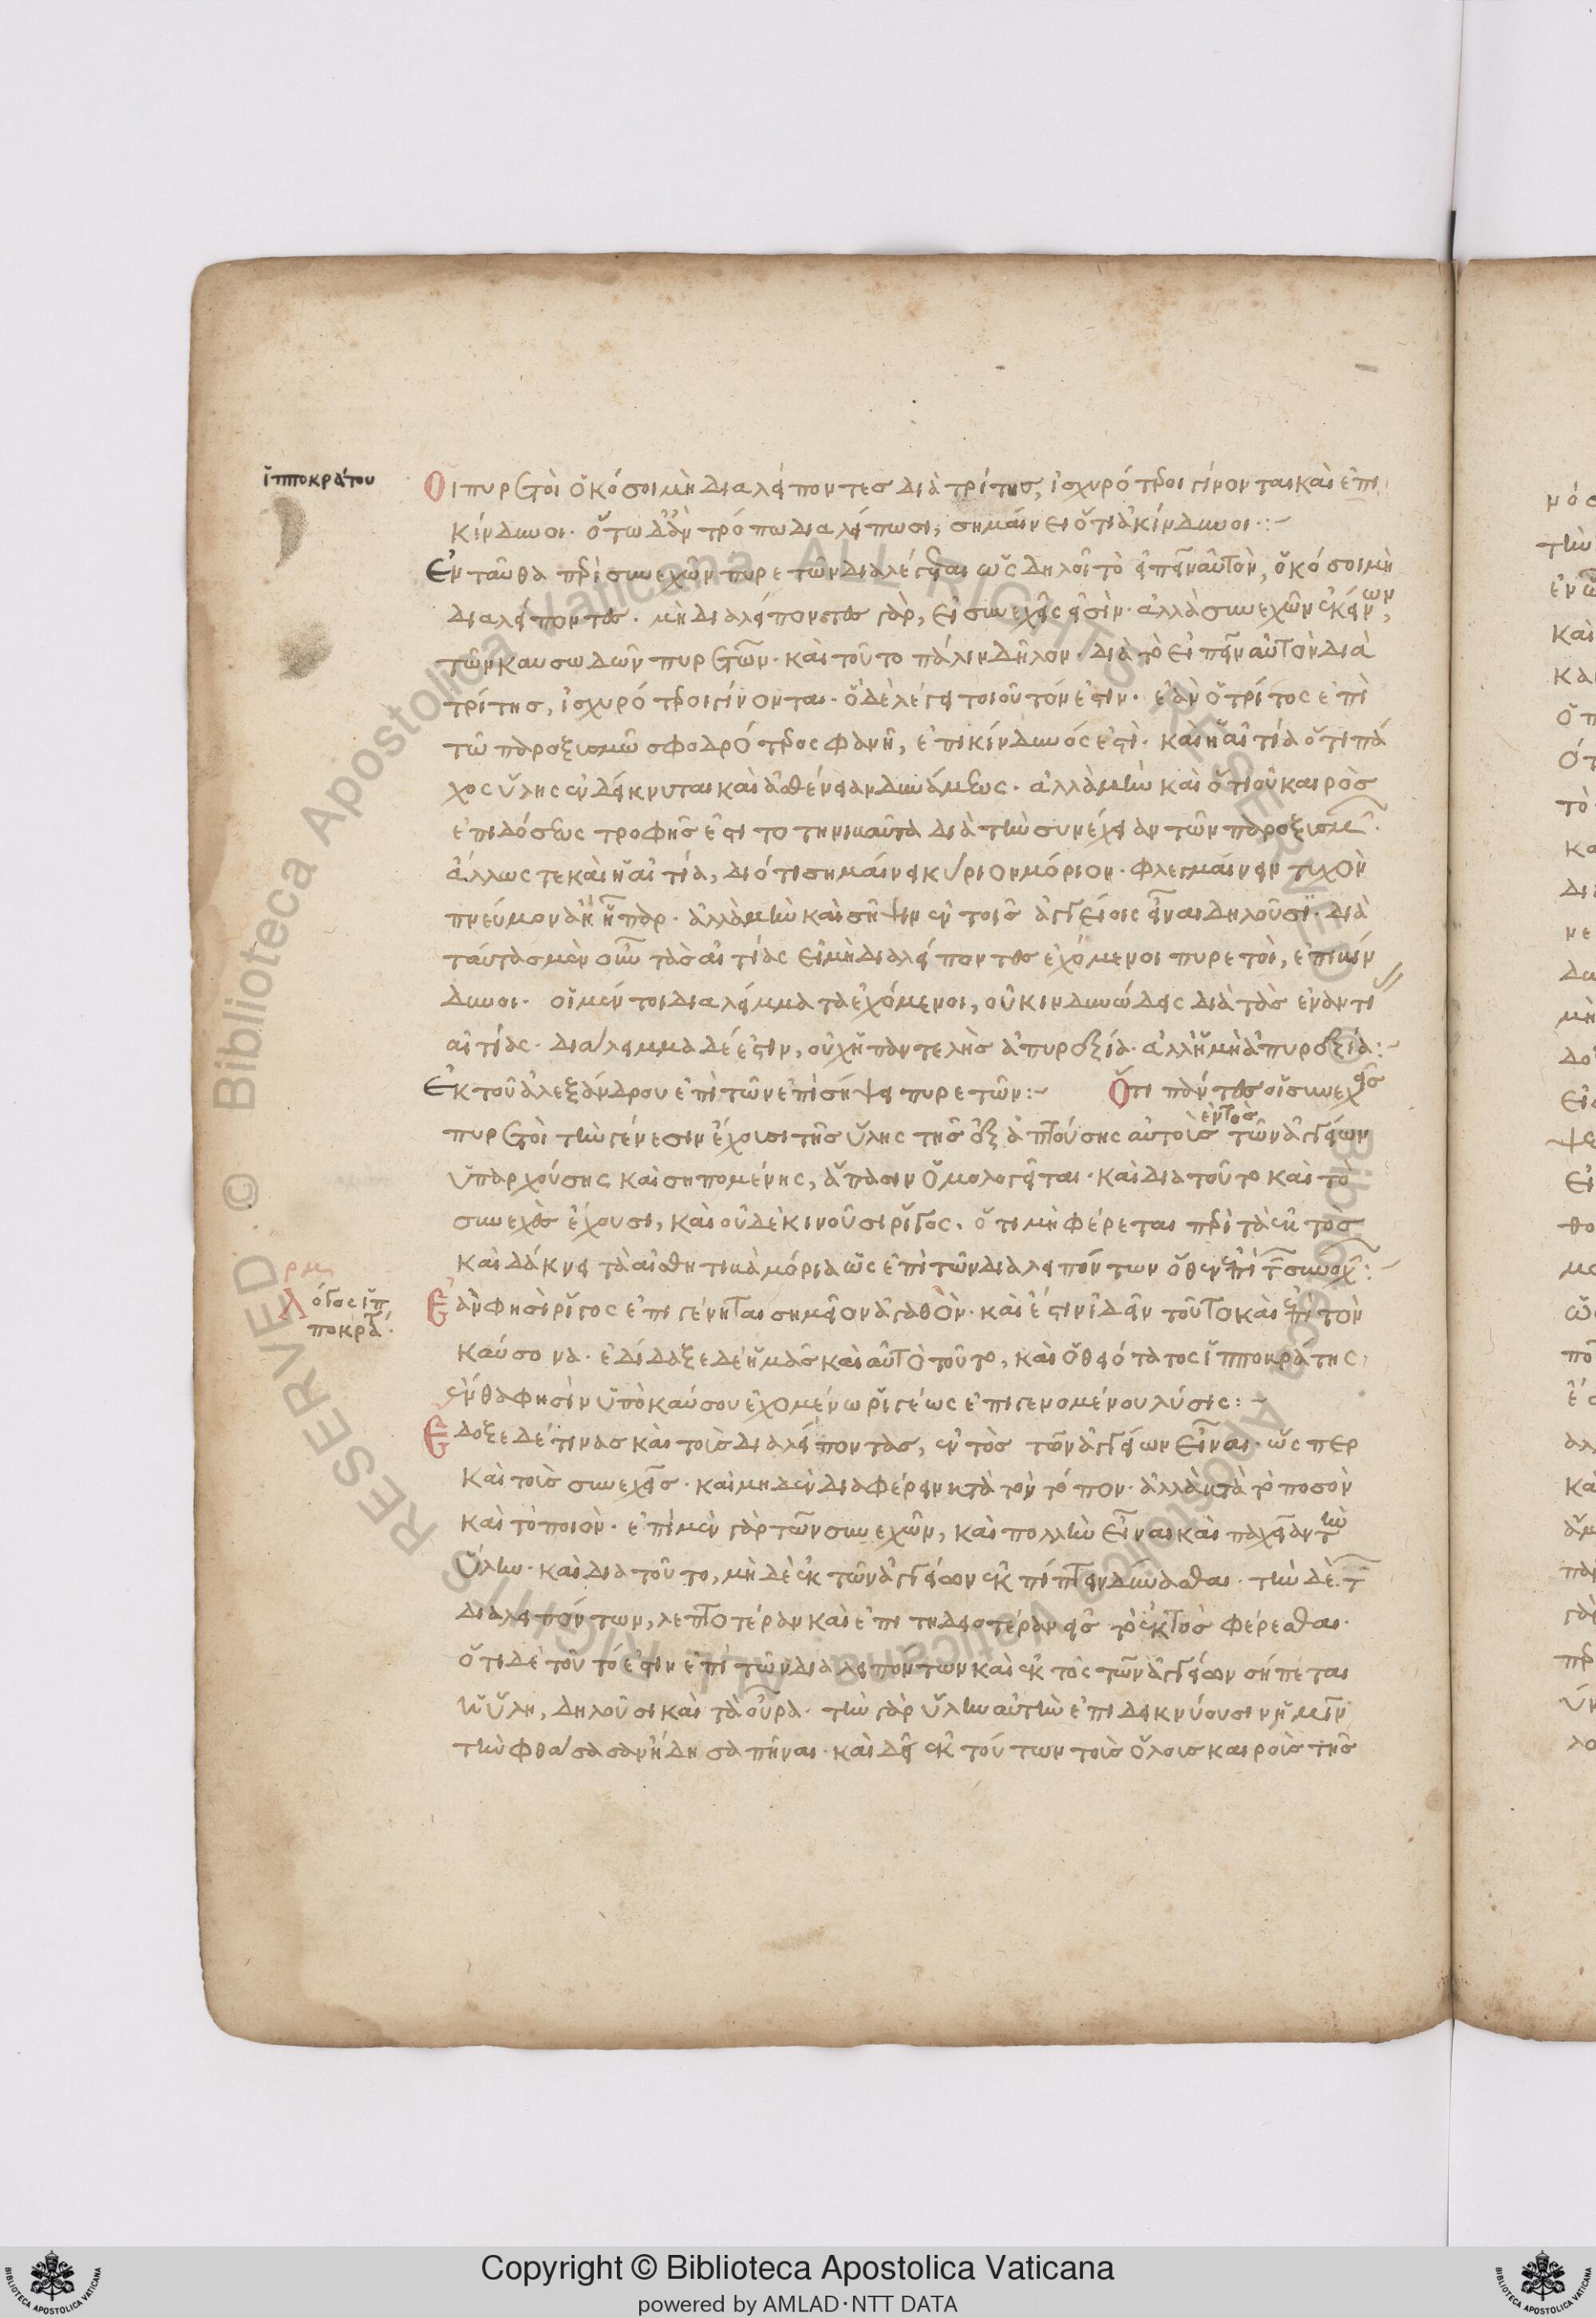 ἱπποκράτου
Οἱ πυρετοὶ ὁκόσοι μὴ διαλείποντες διὰ τρίτης, ἰσχυρότεροι γίνονται καὶ ἐπι
κίνδυνοι. ὅτω δ' ἂν τρόπω διαλείπωσι, σημαίνει ὅτι ἀκίνδυνοι:~
Ἐνταῦθα περὶ συνεχῶν πυρετῶν διαλέγεται ὡς δηλοῖ τὸ εἰπεῖν αὐτὸν, ὁκόσοι μὴ
διαλείποντες. μὴ διαλείποντες γὰρ, οἱ συνεχεῖς εἰσὶν. ἀλλὰ συνεχῶν ἐκείνων,
τῶν καυσωδῶν πυρετῶν. καὶ τοῦτο πάλιν δῆλον. διὰ τὸ εἰπεῖν αὐτὸν διὰ
τρίτης, ἰσχυρότεροι γίνονται. ὃ δὲ λέγει τοιοῦτόν ἐστιν. ἐὰν ὁ τρίτος ἐπὶ
τῶ παροξυσμῶ σφοδρότερος φανῆ, ἐπικίνδυνός ἐστι. καὶ ἡ αἰτία ὅτι πά
χος ὕλης ἐνδείκνυται καὶ ἀσθένειαν δυνάμεως. ἀλλὰ μὴν καὶ ὅτι οὐ καιρὸς
ἐπιδόσεως τροφῆς ἐστι τὸ τηνικαῦτα διὰ τὴν συνέχειαν τῶν παροξυσμῶν.
ἄλλως τε καὶ ἡ αἰτία, διότι σημαίνει κύριον μόριον. φλεγμαίνειν τυχὸν
πνεύμονα ἢ ἧπαρ. ἀλλὰ μὴν καὶ σῆψιν ἐν τοῖς ἀγγείοις εἶναι δηλοῦσι. διὰ
ταύτας μὲν οὖν τὰς αἰτίας οἱ μὴ διαλείποντες ἐχόμενοι πυρετοὶ, ἐπικίν
δυνοι. οἱ μέντοι διαλείμματα ἐχόμενοι, οὐ κινδυνώδεις διὰ τὰς ἐναντί
αἰτίας. διάλειμμα δέ ἐστιν, οὐχ ἡ παντελὴς ἀπυρεξία. ἀλλ' ἡ μὴ ἀπυρεξία:~
Ἐκ τοῦ ἀλεξάνδρου ἐπὶ τῶν ἐπὶ σήψει πυρετῶν:~ Ὅτι πάντες οἱ συνεχεῖς
πυρετοὶ τὴν γένεσιν ἔχουσι τῆς ὕλης τῆς ἐξαπτούσης αὐτοὺς ἐντὸς τῶν ἀγγείων
ὑπαρχούσης καὶ σηπομένης, ἅπασιν ὁμολογεῖται. καὶ διατοῦτο καὶ τὸ
συνεχὲς ἔχουσι, καὶ οὐδὲ κινοῦσι ρῖγος. ὅτι μὴ φέρεται περὶ τὰ ἐκτὸς
καὶ δάκνει τὰ αἰσθητικὰ μόρια ὡς ἐπὶ τῶν διαλειπόντων ὅθεν ἐπὶ τῶν συνοχ:~
ρμ
Λόγος ἱπ
ποκρά.
Ἐὰν φησὶ ρῖγος ἐπιγένηται σημεῖον ἀγαθὸν. καὶ ἔστιν ἰδεῖν τοῦτο καὶ ἐπὶ τὸν
καύσονα. ἐδίδαξε δὲ ἡμᾶς καὶ αὐτὸ τοῦτο, καὶ ὁ θειότατος ἱπποκράτης,
ἔνθα φησὶν ὑπὸ καύσου ἐχομένω ρίγεως ἐπιγενομένου λύσις:~
Ἔδοξε δέ τινας καὶ τοὺς διαλείποντας, ἐντὸς τῶν ἀγγείων εἶναι. ὥσπερ
καὶ τοὺς συνεχεῖς. καὶ μηδὲν διαφέρειν κατὰ τὸν τόπον. ἀλλὰ κατὰ τὸ ποσὸν
καὶ τὸ ποιὸν. ἐπὶ μὲν γὰρ τῶν συνεχῶν, καὶ πολλὴν εἶναι καὶ παχεῖαν τὴν
ὕλην. καὶ διατοῦτο, μὴ δὲ ἐκ τῶν ἀγγείων ἐκπίπτειν δύνασθαι. τὴν δὲ τῶν
διαλειπόντων, λεπτοτέραν καὶ ἐπιτηδειοτέραν εἰς τὸ ἐκτὸς φέρεσθαι.
ὅτι δὲ τοῦτό ἐστιν ἐπὶ τῶν διαλειπόντων καὶ ἐκτὸς τῶν ἀγγείων σήπεται
ἡ ὕλη, δηλοῦσι καὶ τὰ οὖρα. τὴν γὰρ ὕλην αὐτὴν ἐπιδεικνύουσιν ἡμῖν
τὴν φθάσασαν ἤδη σαπῆναι. καὶ δεῖ ἐκ τούτων τοῖς ὅλοις καιροῖς τῆς
Copyright © Biblioteca Apostolica Vaticana
powered by AMLAD·NTT DATA